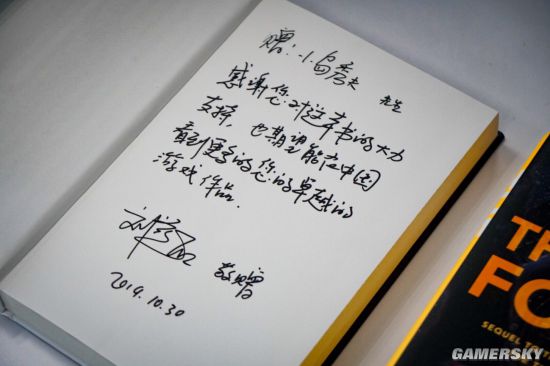 赠:小岛秀夫 先生
感谢您对这本书的大力
支持,也期望能在中国
看到更多的您的卓越的
游戏作品.
刘慈欣 敬赠
2019.10.30
FO
SEQUEL TO
GAMERSKY